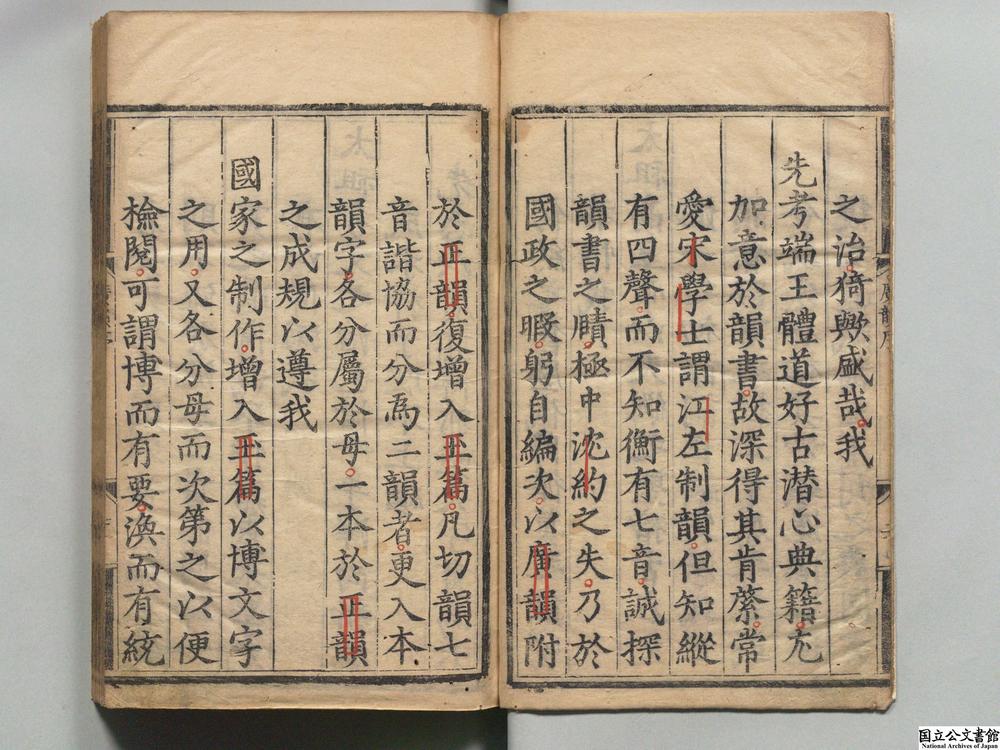 之治猗歟盛哉我
先考端王體道好古潛心典籍尤
加意於韻書故深得其肯綮常
愛宋學士謂江左制韻但知縱
有四聲而不知衡有七音誠探
韻書之賾極中沈約之失乃於
國政之暇躬自編次以廣韻附
於正韻復增入玉篇凡切韻七
音諧協而分爲二韻者更入本
韻字各分屬於母一本於正韻
之成規以遵我
國家之制作增入玉篇以博文字
之用又各分母而次第之以便
檢閱可謂博而有要渙而有統
廣韻序
国立公文書館
National Archives of Japan